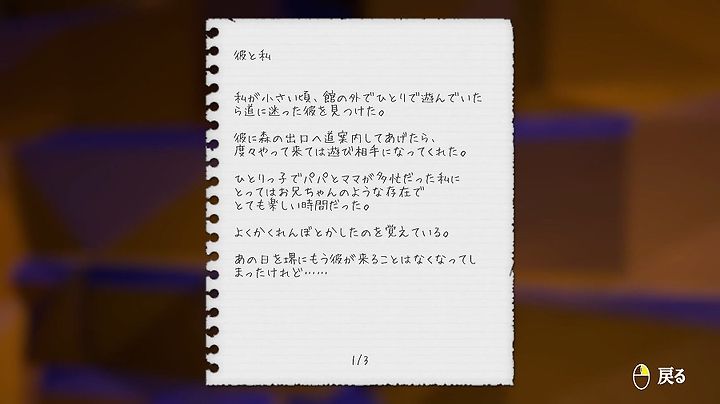 彼と私
私が小さい頃、館の外でひとりで遊んでいた
ら道に迷った彼を見つけた。
彼に森の出口へ道案内してあげたら、
度々やって来ては遊び相手になってくれた。
ひとりっ子でパパとママが多忙だった私に
とってはお兄ちゃんのような存在で
とても楽しい時間だった。
よくかくれんぼとかしたのを覚えている。
あの日を堺にもう彼が来ることはなくなってし
まったけれど……
1/3
戻る